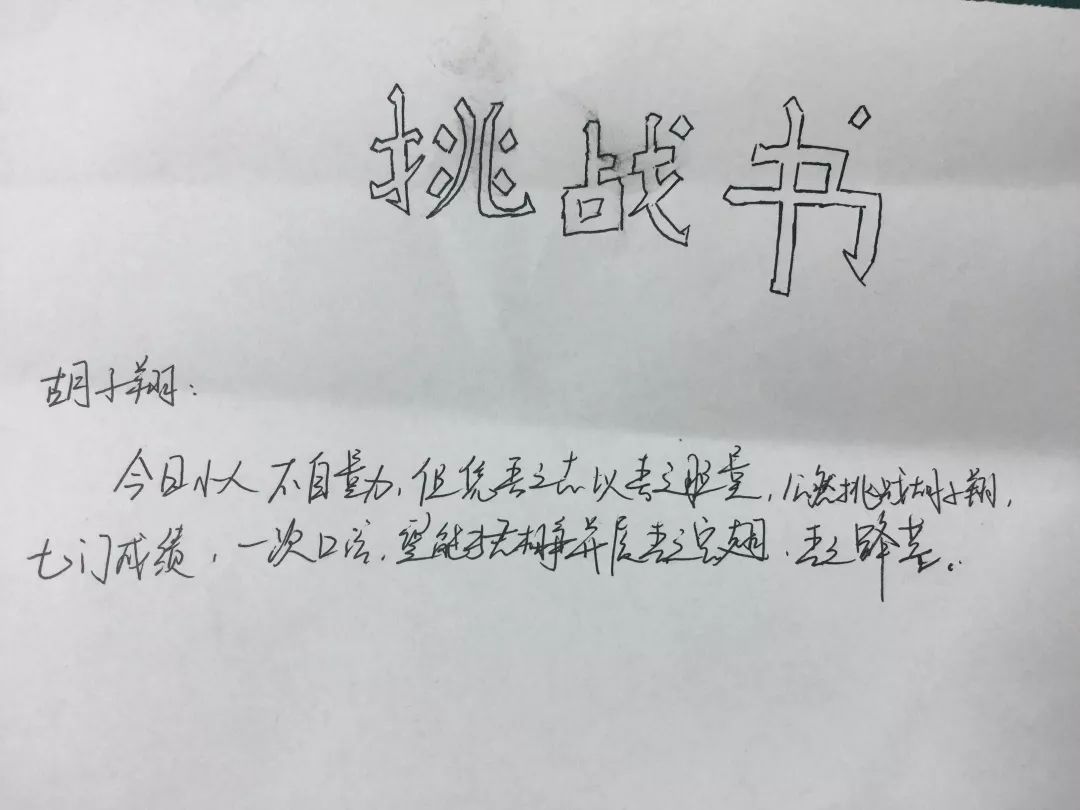 挑战书
胡子翔:
今日小人不自量力,但凭吾之志以吾之胆量,公然挑战胡子翔,
七门成绩,一次口活,望能扶摇并展吾之宏翅,吾之障基。